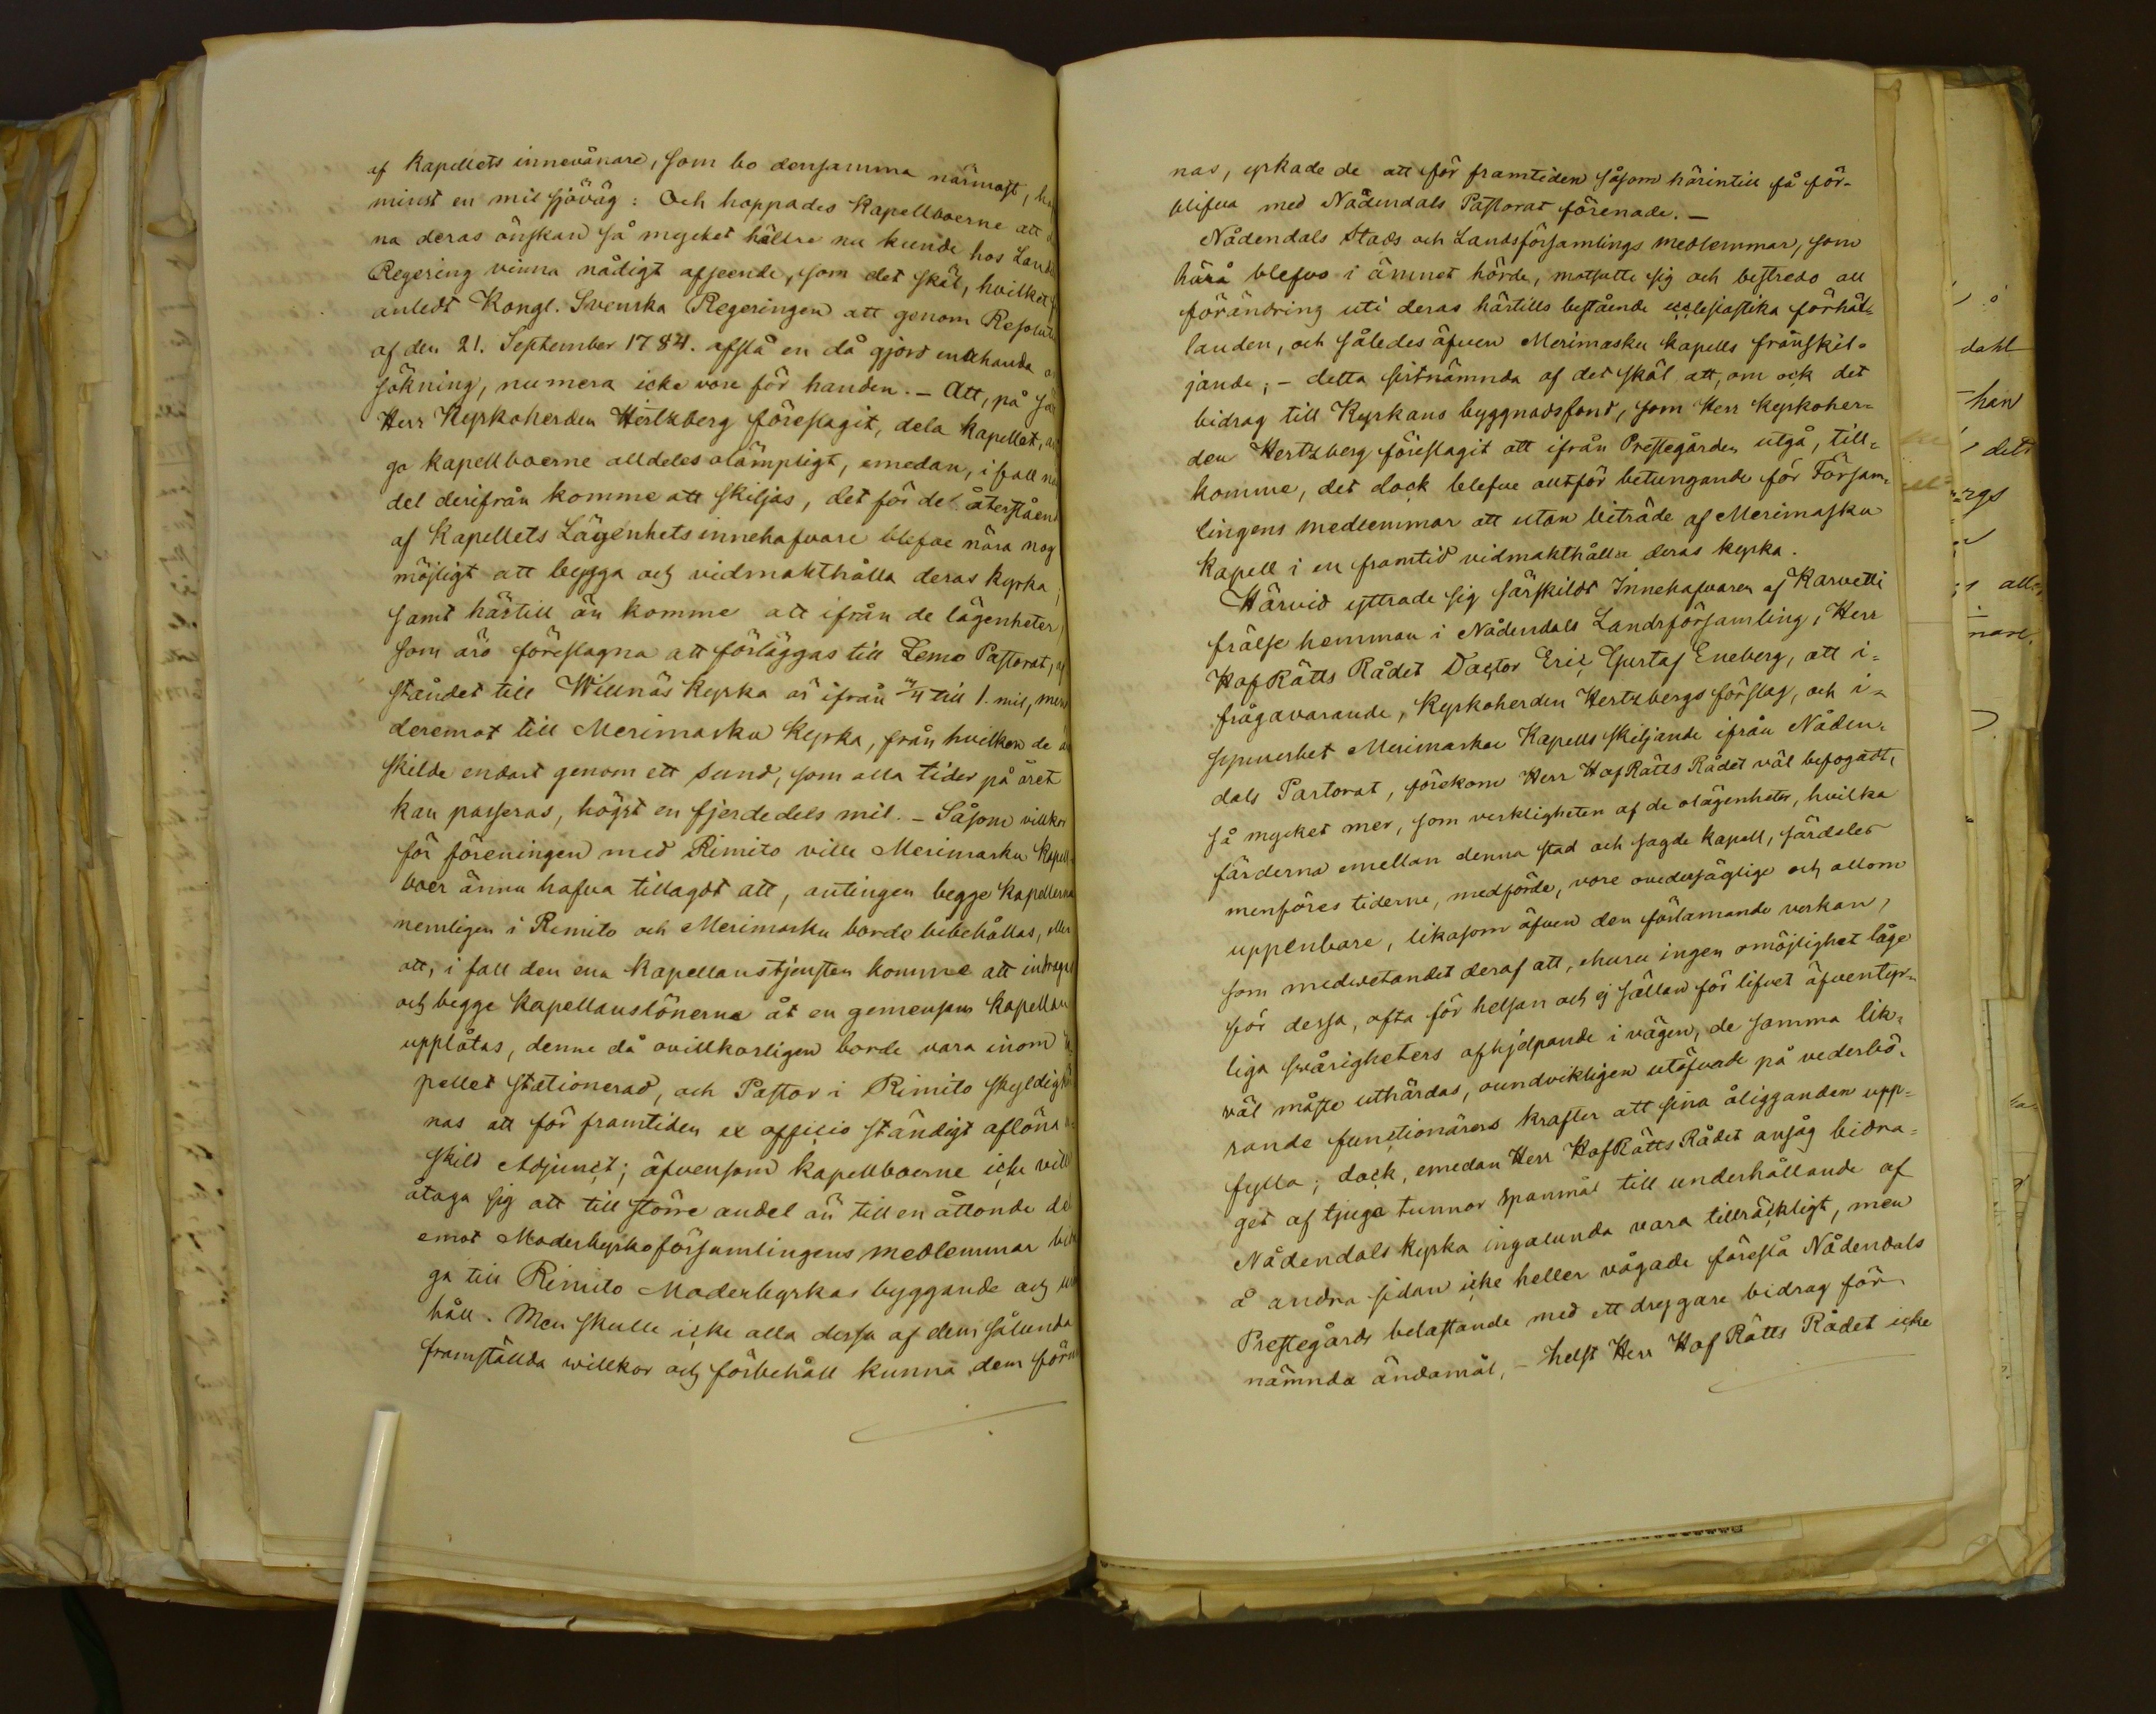 af Kapellets innevånare, som bo densamma närmast,
minst en mil sjöväg: Och hoppades Kapellboerne att
na deras önskan så mycket hällre nu kunde hos Lan
Regering vinna nådigt afseende, som det skäl, hvilket
anledt Kongl. Svenska Regeringen att genom Resolut
af den 21. September 1784. afslå en då gjord enahanda
sökning, numera icke vore för handen. - Att, på
Herr Kyrkoherden Hertzberg föreslagit, dela Kapellet,
go kapellboerne alldeles olämpligt, emedan, i fall
del derifrån komme att skiljas, det för de återståen
af Kapellets Lägenhetsinnehafvare blefve nära nog
möjligt att bygga och vidmakthålla deras kyrka,
samt härtill än komme att ifrån de lägenheter,
som äro föreslagna att förläggas till Lemo Pastorat,
ståndet till Willnäs Kyrka är ifrån till 1. mil, men
deremot till Merimasku Kyrka, från hvilken de
skilde endast genom ett sund, som alla tider på året
kan passeras, högst en fjerdedels mil. - Såsom villkor
för föreningen med Rimito ville Merimasku Kapell
boer ännu hafva tillagdt att, antingen begge Kapellerna
nemligen i Rimito och Merimasku borde bibehållas, eller
att, i fall den ena Kapellanstjensten komme att indraga
och begge Kapellanslönerna åt en gemensam Kapellan
upplåtas, denne då ovillkorligen borde vara inom
pellet stationerad, och Pastor i Rimito skyldig
nas att för framtiden ex officio ständigt aflöna
skild Adjunct; äfvensom kapellboerne icke ville
åtaga sig att till större andel än till en åttonde del
emot Moderkyrkoförsamlingens medlemmar
ga till Rimito Moderkyrkas byggande och
håll. Men skulle icke alla dessa af dem sålunda
framställda willkor och förbehåll kunna dem
nas, yrkade de att för framtiden såsom härintill få för-
blifva med Nådendals Pastorat förenade. -
Nådendals Stads och Landsförsamlings medlemmar, som
härå blefvo i ämnet hörde, motsatte sig och bestredo all
förändring uti deras härtills bestående ecclesiastika förhål-
landen, och således äfven Merimasku kapells frånskil-
jande; - detta sistnämnda af det skäl att, om ock det
bidrag till Kyrkans byggnadsfond, som Herr Kyrkoher-
den Hertzberg föreslagit att ifrån Prestegården utgå, till-
komme, det dock blefve alltför betungande för Försam-
lingens medlemmar att utan biträde af Merimasku
Kapell i en framtid vidmakthålla deras kyrka.
Härvid yttrade sig särskildt Innehafvaren af Karvetti
frälse hemman i Nådendals Landsförsamling, Herr
HofRätts Rådet Doctor Eric Gustaf Eneberg, att i-
frågavarande, Kyrkoherden Hertzbergs förslag, och i-
synnerhet Merimasku Kapells skiljande ifrån Nåden-
dals Pastorat, förekom Herr HofRätts Rådet väl befogadt,
så mycket mer, som verkligheten af de olägenheter, hvilka
färderna emellan denna stad och sagde kapell, särdeles
menföres tiderne, medförde, vore ovedersäglige och allom
uppenbare, likasom äfven den förlamande verkan,
som medvetandet deraf att, ehuru ingen omöjlighet låge
för dessa, ofta för helsan och ej sällan för lifvet äfventyr-
liga svårigheters afhjelpande i vägen, de samma lik-
väl måste uthärdas, oundvikligen utöfvade på vederbö-
rande functionärers krafter att sina åligganden upp-
fylla; dock, emedan Herr HofRätts Rådet ansåg bidra-
get af tjugo tunnor spanmål till underhållande af
Nådendals kyrka ingalunda vara tillräckligt, men
å andra sidan icke heller vågade föreslå Nådendals
Prestegårds belastande med ett drygare bidrag för
nämnda ändamål, - helst Herr HofRätts Rådet icke
dahl
han
det
rgs
all
nare.